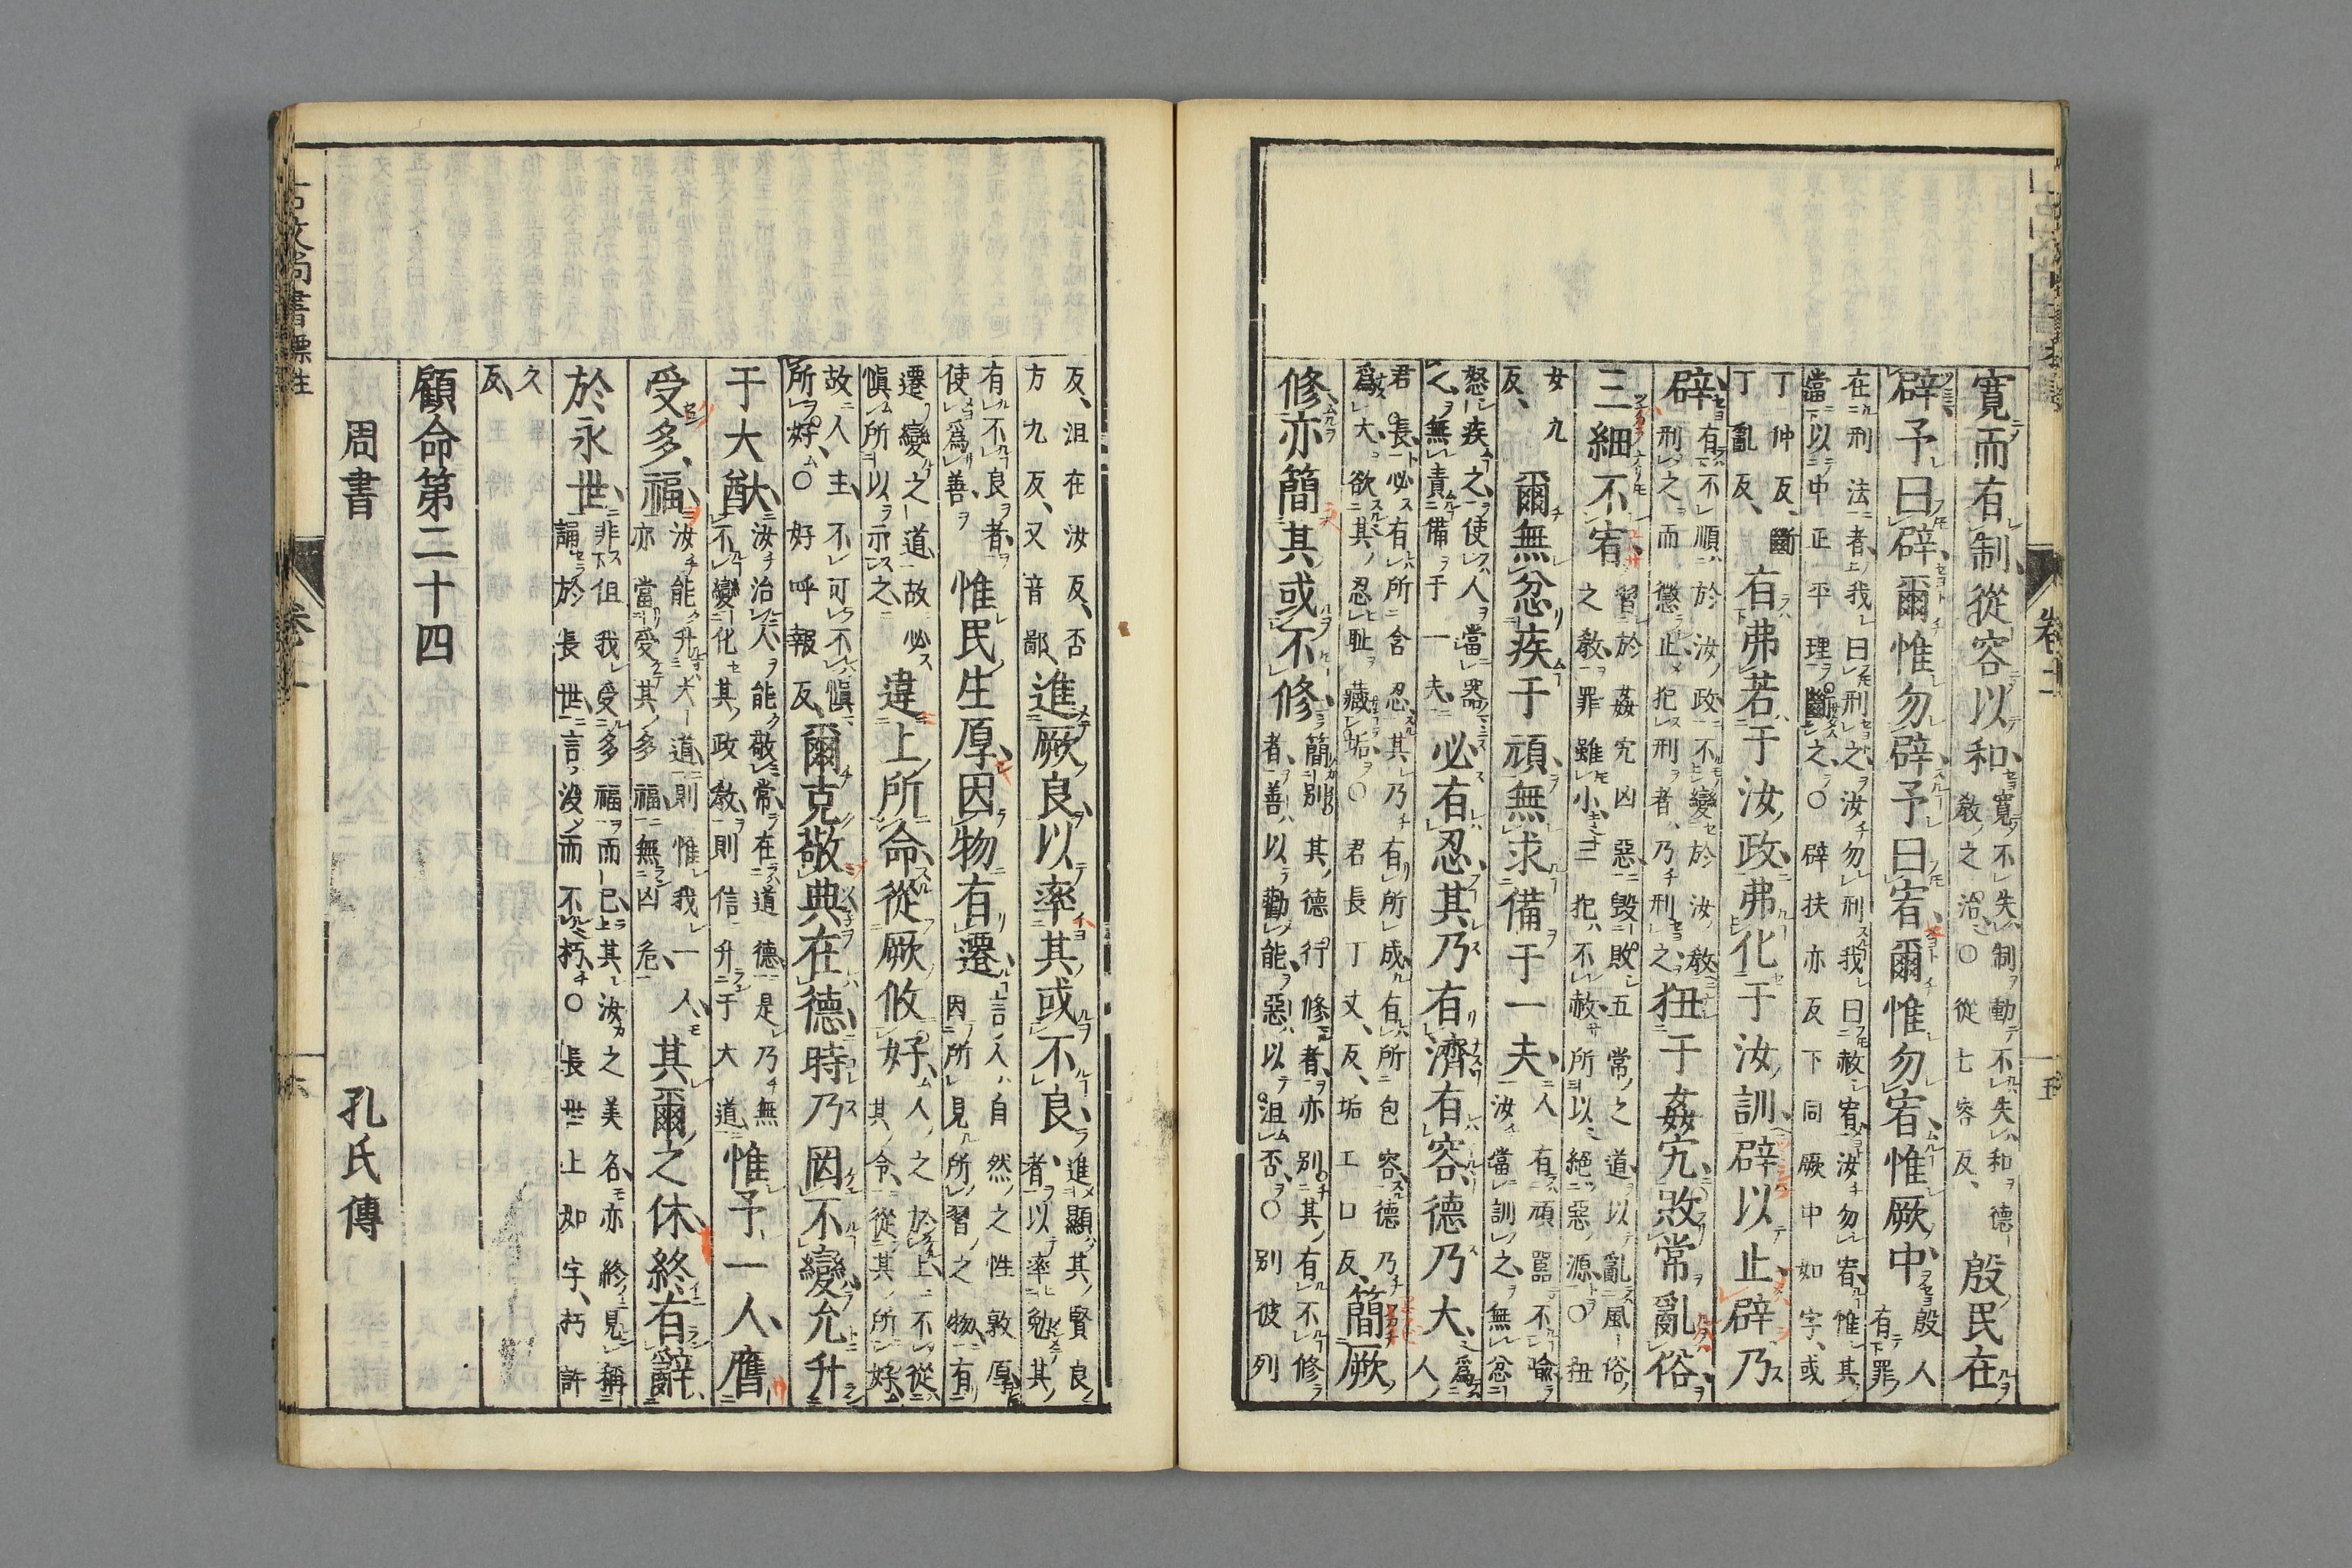 寛而有制從容以和寛不失制動不失和德敎之治○從七容反殷民在
辟予曰辟爾惟勿辟予曰宥爾惟勿宥惟厥中殷人有罪
在刑法者我曰刑之汝勿刑我曰赦宥汝勿宥惟其當以中正平理斷之○辟扶亦反下同厥中如字或
丁仲反斷丁亂反有弗若于汝政弗化于汝訓辟以止辟乃
辟有不順於汝政不變於汝敎刑之而懲止犯刑者乃刑之狃于姦宄敗常亂俗
三細不宥習於姦宄凶惡毀敗五常之道以亂風俗之敎罪雖小三犯不赦所以絕惡源○狃
女九反爾無忿疾于頑無求備于一夫人有頑嚚不喻汝當訓之無忿
怒疾之使人當器之無責備于一夫必有忍其乃有濟有容德乃大爲人
君長必有所含忍其乃有所成有所包容德乃爲大欲其忍耻藏垢○君長丁丈反垢工口反簡厥
修亦簡其或不修簡別其德行修者亦別其有不修者善以勸能惡以沮否○別彼列
反沮在汝反否方九反又音鄙進厥良以率其或不良進顯其賢良者以率勉其
有不良者使爲善惟民生厚因物有遷言人自然之性敦厚因所見所習之物有
遷變之道故必愼所以示之違上所命從厥攸好人之於上不從其令從其所好
故人主不可不愼所好○好呼報反爾克敬典在德時乃罔不變允升
于大猷汝治人能敬常在道德是乃無不變化其政敎則信升于大道惟予一人膺
受多福汝能升大道則惟我一人亦當受其多福無凶危其爾之休終有辭
於永世非但我受多福而已其汝之美名亦終見稱誦於長世言沒而不朽○長世上如字朽許
久反
顧命第二十四
周書 孔氏傳
古文尚書標註 卷十一 六
卷十一 五